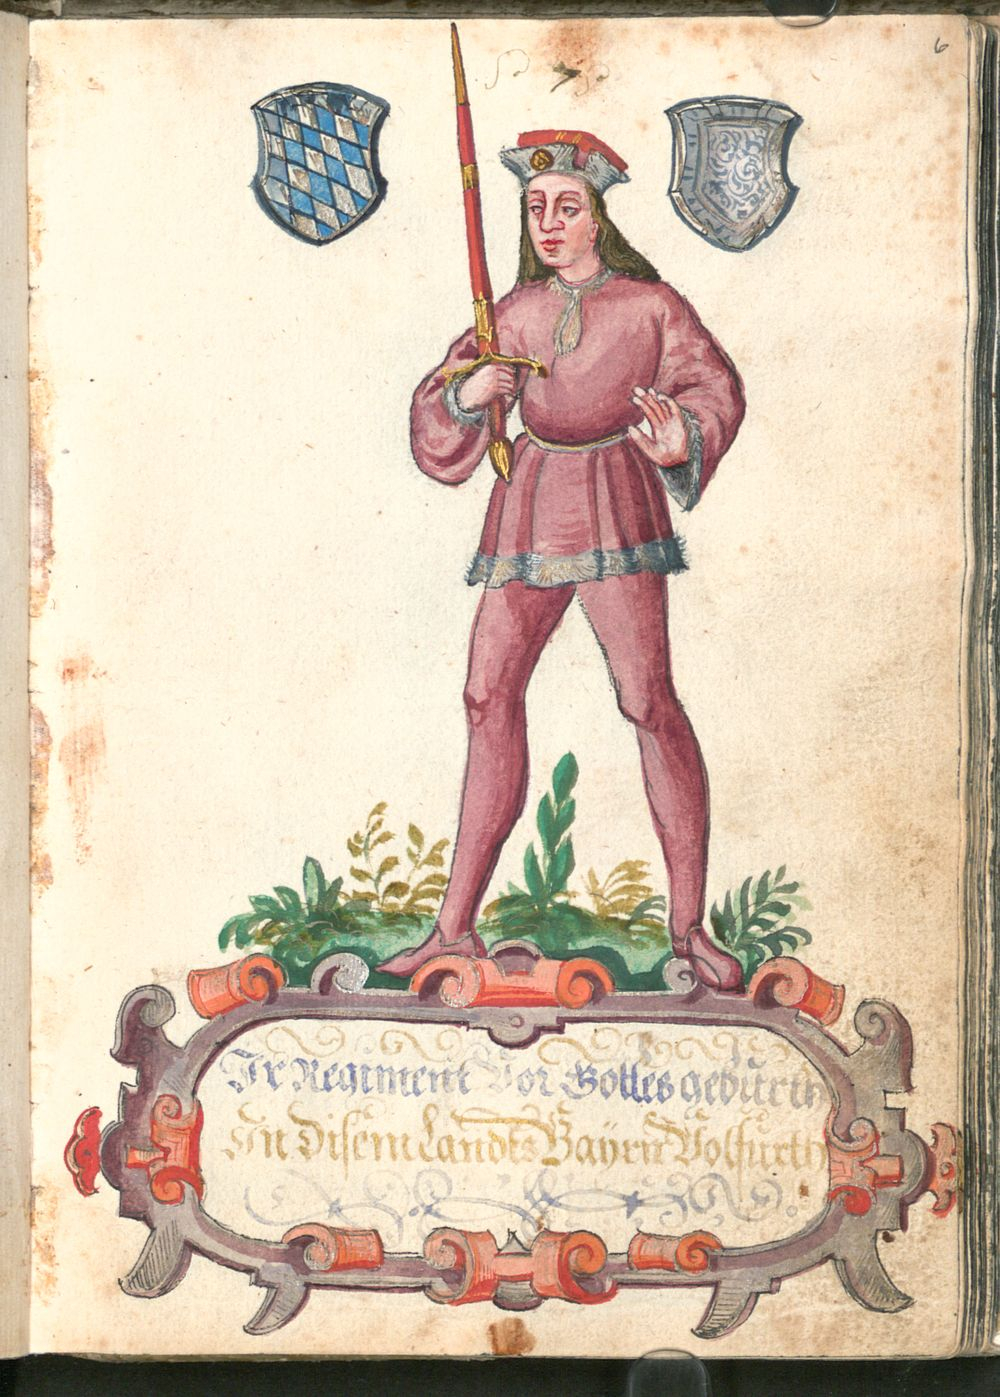 6
Ir Regiment Vor Gottes geburth
In disem Landts Bayrn Volfurth